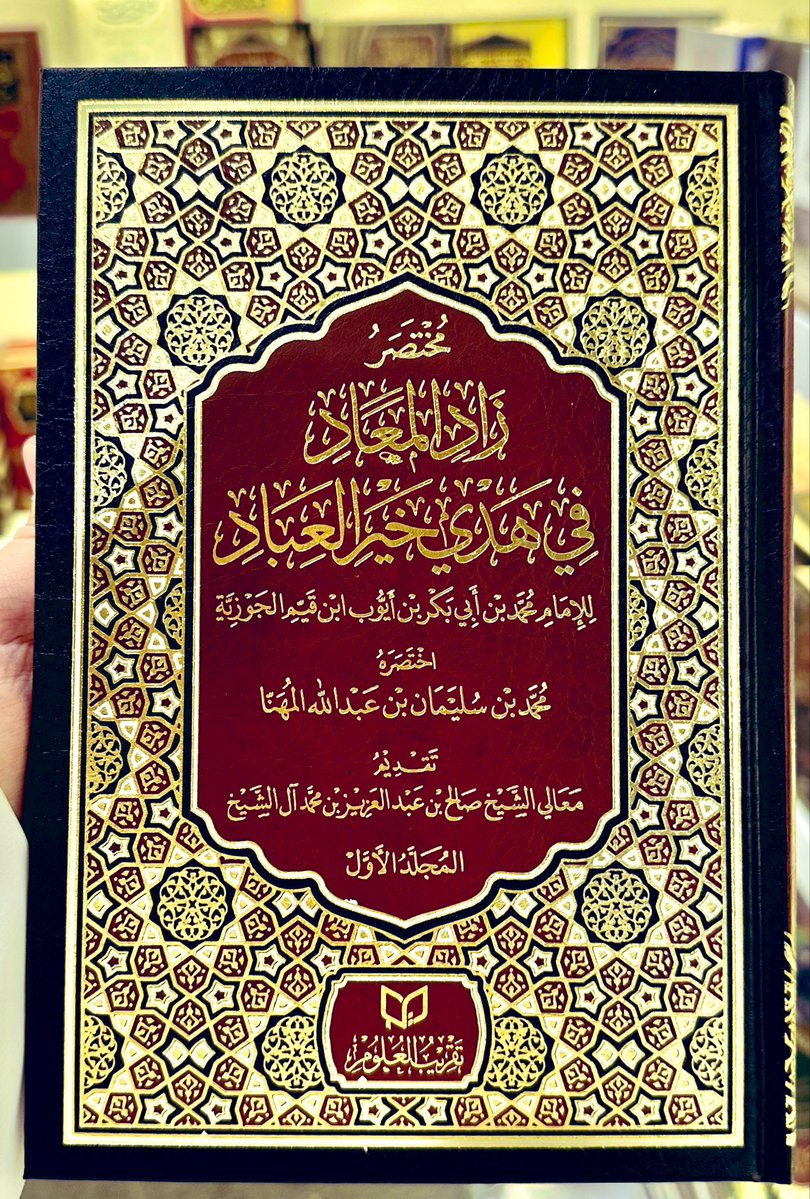 مُخْتَصَرُ
زَادِ المَعَادِ
فِي هَدْيِ خَيْرِ العِبَادِ
لِلإِمَامِ مُحَمَّد بْن أَبِي بَكْر بْن أَيُّوب ابْن قَيِّمِ الجَوْزِيَّةِ
اخْتَصَرَهُ
مُحَمَّد بْن سُلَيْمَان بْن عَبْدالله المُهَنَّا
تَقْدِيْمُ
مَعَالي الشَّيْخ صَالِح بْن عَبْد العَزِيْز بْن مُحَمَّد آل الشَّيْخ
المُجَلَّدُ الأَوَّلُ
تَقْرِيْبُ العُلُوْمِ